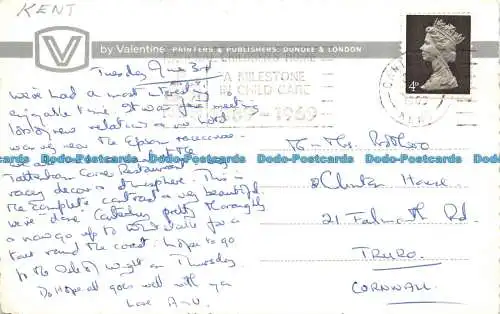 KENT
V
by Valentine PRINTERS & PUBLISHERS, DUNDEE & LONDON
4D
A MILESTONE
IN CHILD CARE
1869-1969
KENT
Tuesday June 3rd
We've had a most interesting
enjoyable time. It was fun meeting
relatives & on
was very near the Epsom racecourse
Tattenham Corner Restaurant
racey decor & atmosphere This is
the complete contrast & very beautiful
we've done Canterbury pretty thoroughly
& now go up to for a
tour round the coast. Hope to go
to the Isle of Wight on Thursday.
Do Hope all goes well with you
Love
To
8 Clinton House.
21 Falmouth Rd.
TRURO.
CORNWALL.
Dodo-Postcards Dodo-Postcards Dodo-Postcards Dodo-Postcards Dodo-Postcards